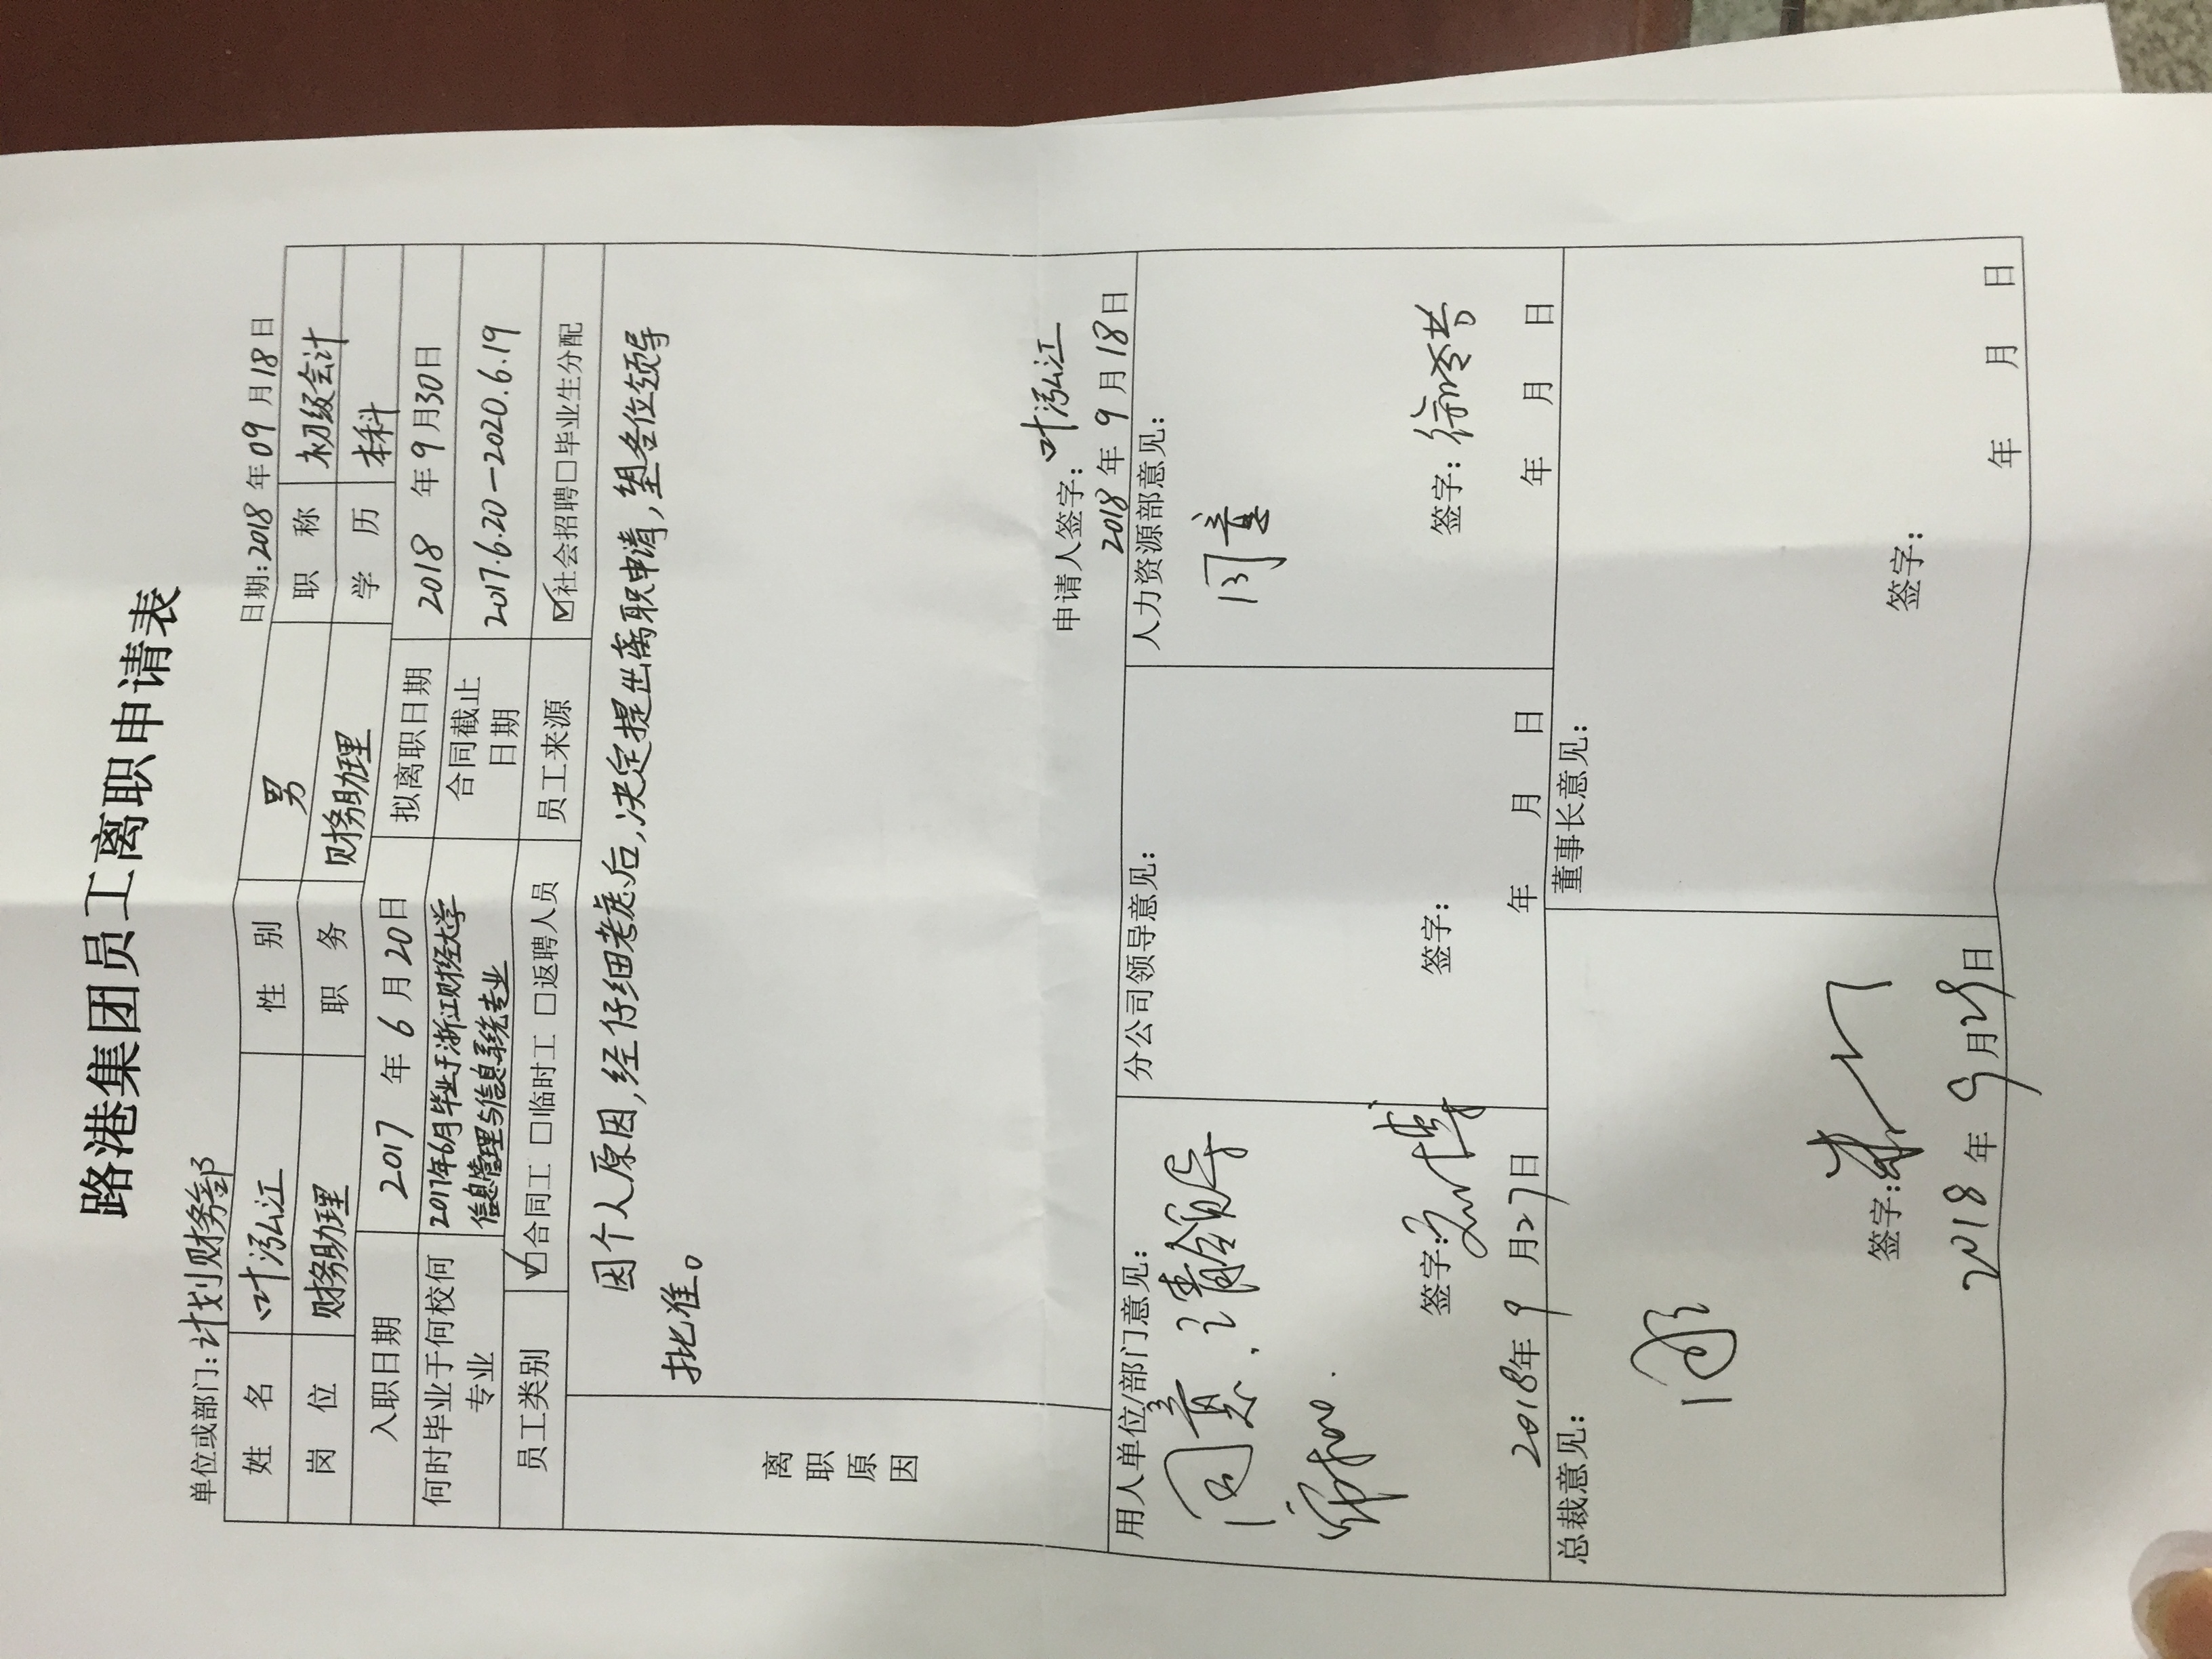 路港集团员工离职申请表
单位或部门:计划财务部 日期:2018年09月18日
姓名 叶泓江 性别 男 职称 初级会计
岗位 财务助理 职务 财务助理 学历 本科
入职日期 2017年6月20日 拟离职日期 2018年9月30日
何时毕业于何校何专业 2017年6月毕业于浙江财经大学信息管理与信息系统专业 合同截止日期 2017.6.20—2020.6.19
员工类别 ☑合同工 □临时工 □返聘人员 员工来源 ☑社会招聘□毕业生分配
离职原因
因个人原因,经仔细考虑后,决定提出离职申请,望各位领导
批准。
申请人签字:叶泓江
2018年9月18日
用人单位/部门意见:
同意.请领导
审批.
签字:
2018年9月27日
分公司领导意见:
签字:
年 月 日
人力资源部意见:
同意
签字:
年 月 日
总裁意见:
同意
签字:
2018年9月29日
董事长意见:
签字:
年 月 日